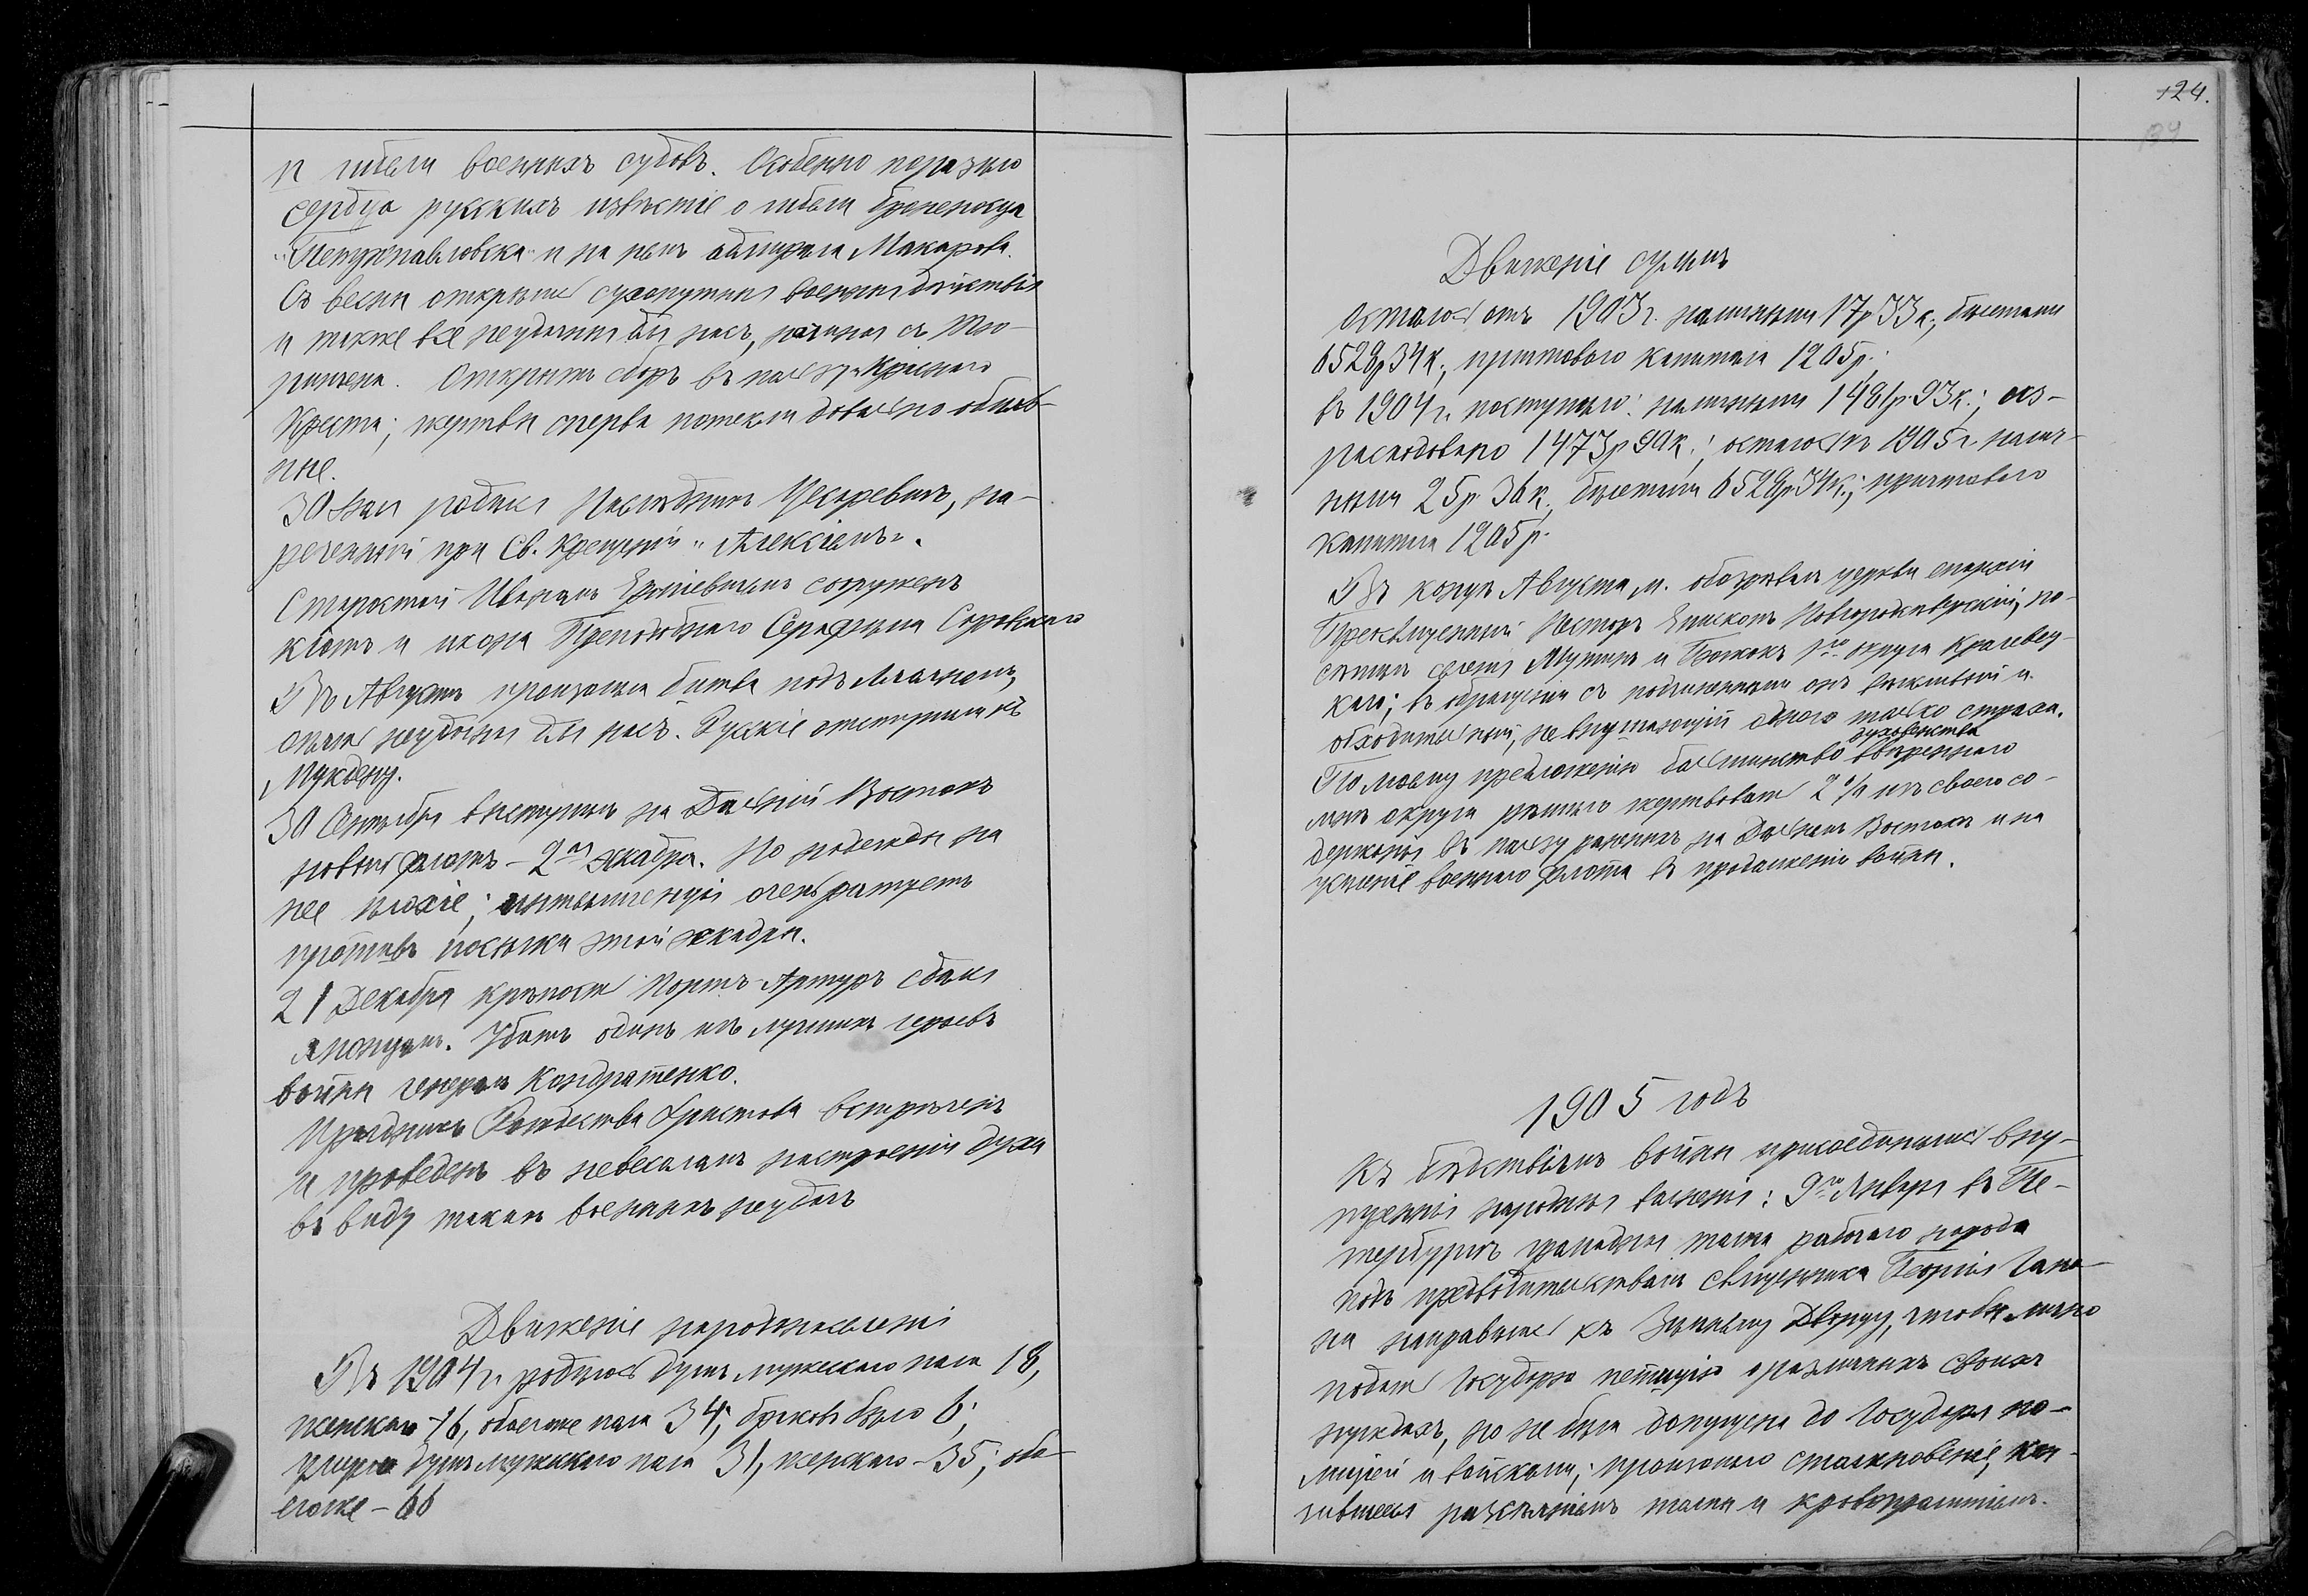 и гибели военныхъ судовъ. Особенно поразило
сердца русскихъ извѣстіе о гибели броненосца
„Петропавловска“ и на немъ адмирала Макарова.
Съ весны открылись сухопутныя военныя дѣйствія
и также всѣ неудачныя для насъ, начиная съ Тю-
ренчена. Открытъ сборъ въ пользу Краснаго
Креста; жертвы сперва потекли довольно обиль-
ные.
30 Іюля родился Наслѣдникъ Цесаревичъ, на-
реченный при Св. Крещеніи „Алексіемъ“.
Старостой Иваномъ сооруженъ
кіотъ и икона Преподобнаго Серафима Саровскаго
Въ Августѣ произошла битва подъ Ляояномъ,
опять неудачная для насъ. Русскіе отступили къ
Мукдену.
30 Сентября выступилъ на Дальній Востокъ
новый флотъ – 2ая эскадра. Но надежды на
нее плохіе; интеллигенція очень ратуетъ
противъ посылки этой эскадры.
21 Декабря крѣпость Портъ-Артуръ сдался
японцамъ. Убитъ одинъ изъ лучшихъ героевъ
войны генералъ Кондратенко.
Праздникъ Рождества Христова встрѣченъ
и проведенъ въ невеселомъ настроеніи духа
въ виду такихъ военныхъ неудачъ
Движеніе народонаселенія
Въ 1904 г. родилось душъ мужескаго пола 18,
женскаго – 16, обоегоже пола 34; браковъ было 6;
умерло душъ мужескаго пола 31, женскаго – 35; обо-
егоже – 66
124.
134
Движеніе суммъ
Осталось отъ 1903 г. наличными 17 р 33 к; билетами
6529 р 34 к; причтоваго капитала 1205 р.;
въ 1904 г. поступило: наличными 1481 р. 93 к.; из-
расходовано 1473 р 90 к.; осталось къ 1905 г. налич-
ными 25 р. 36 к, билетами 6529 р. 34 к.; причтоваго
капитала 1205 р.
Въ концѣ Августа м. обозрѣвалъ церкви епархіи
Преосвященный Несторъ Епископъ Новгородсѣверскій, по-
сѣтилъ селенія Мутинъ и Божокъ 1го округа Кролевец-
каго; въ обращеніи съ подчиненными онъ вѣжливый и
обходительный, не внушающій одного только страха.
По моему предложенію большинство духовенства ввѣреннаго
мнѣ округа рѣшило жертвовать 2% изъ своего со-
держанія въ пользу раненыхъ на Дальнемъ Востокѣ и на
усиленіе военнаго флота въ продолженіи войны.
1905 годъ
Къ бѣдствіямъ войны присоединились вну-
треннія народныя волненія: 9го Января въ Пе-
тербургѣ громадная толпа рабочаго народа
подъ предводительствомъ священника Георгія Гапо-
на направилась къ Зимнему Дворцу, чтобы лично
подать Государю петицію о различныхъ своихъ
нуждахъ, но не была допущена до Государя по-
лиціей и войсками; произошло столкновеніе, кон-
чившееся разсѣяніемъ толпы и кровопролитіемъ.